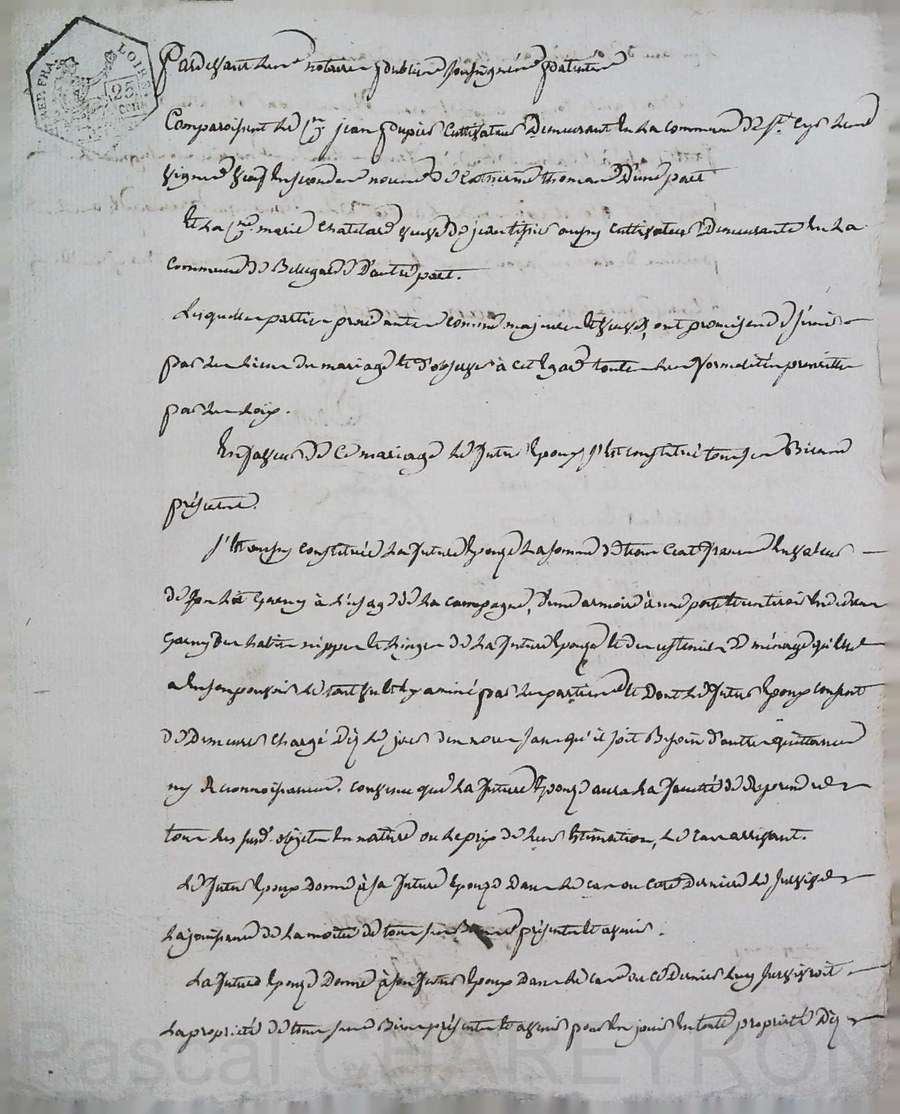 RÉP. FRA. LOIRE
25 CEN.
Pardevant les notaires publics soussignés patentés
Comparoissent le Cen jean Dupuis Cultivateur Demeurant en la commune de St. Cyr les
vignes veuf en secondes noces de Catherine thomas d'une part
Et la Cne. marie chatelard veuve de jean aussy Cultivateur Demeurante en la
Commune de Bellegarde d'autre part.
Lesquelles parties procédantes comme majeures et veuves, ont promis de s'unir
par les liens du mariage et d'observer à cet égard toutes les formalités prescrittes
par les loix.
En faveur de ce mariage le futur Epoux s'est constitué tous ses Biens
présents.
S'est aussy constituée la future Epouze la somme de trois Cent francs en valeur
de son lit garny à l'usage de la campagne, d'une armoire à une porte et un tiroir
garny des habits nippes et linges de la future Epouze et des ustensils de ménage qu'elle
a en son pouvoir le tout vu et examiné par les parties et Dont le futur Epoux consent
de Demeurer chargé Dez le jour des noces sans qu'il soit Besoin d'autre quittance
ny Reconnoissance. convenu que la future Epouze aura la faculté de Reprendre
tous les susd. objets en nature ou le prix de leur Estimation, le cas arrivant.
Le futur Epoux donne à sa future Epouze Dans le cas ou cette Derniere le survive
la jouissance de la moitié de tous ses Biens présents et avenir.
La future Epouze Donne à son futur Epoux Dans le cas ou ce Dernier luy survivroit
la propriété de tous ses Biens présents et avenir pour en jouir en toute propriété Dez
Pascal CHAREYRON